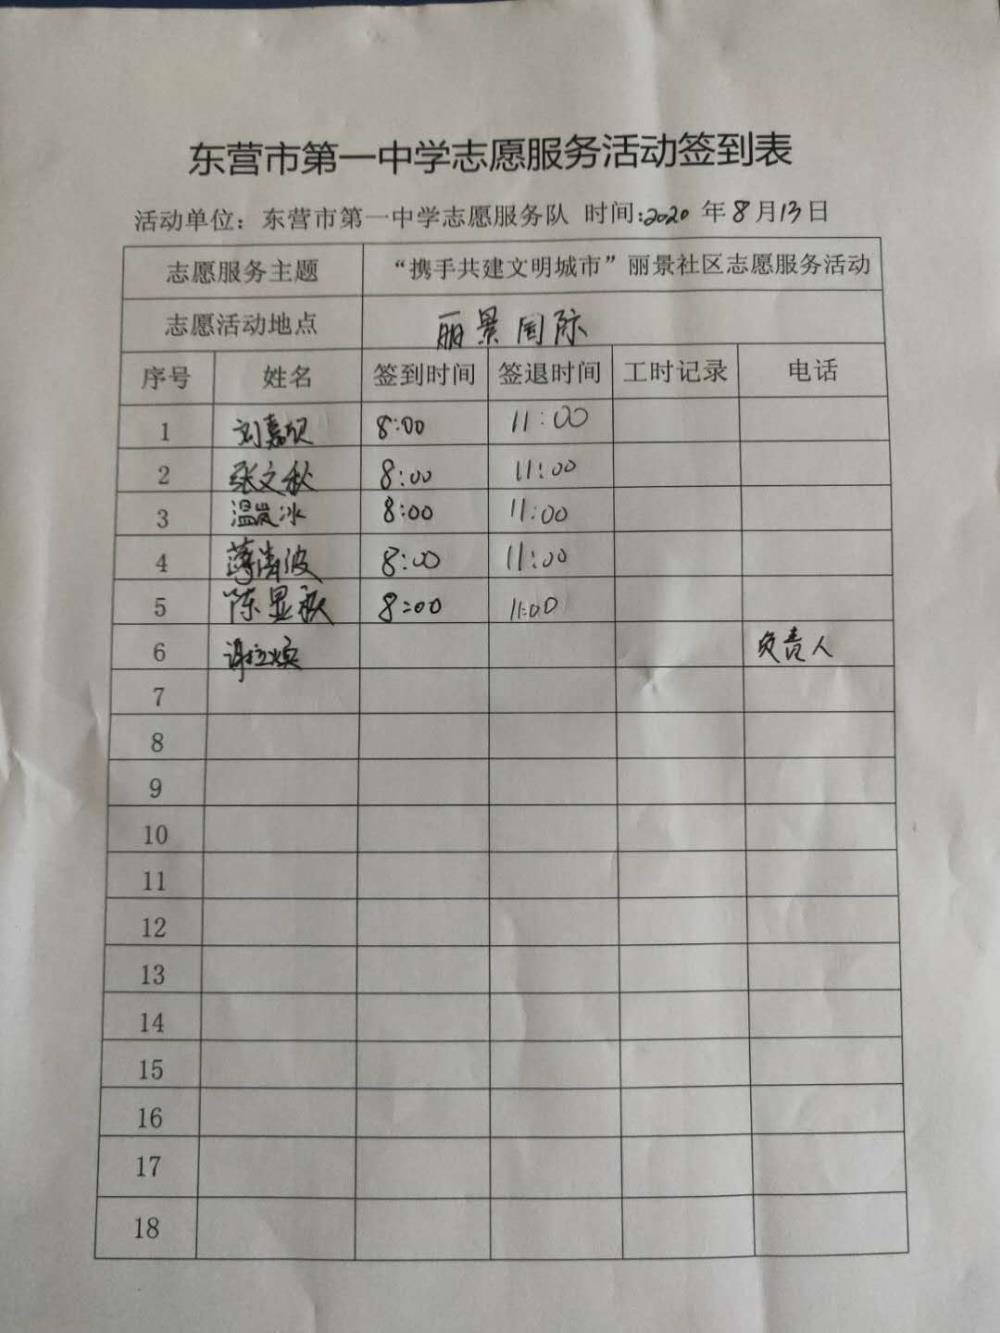 东营市第一中学志愿服务活动签到表
活动单位：东营市第一中学志愿服务队 时间:2020 年 8 月 13 日
志愿服务主题 “携手共建文明城市”丽景社区志愿服务活动
志愿活动地点 丽景国际
序号 姓名 签到时间 签退时间 工时记录 电话
1 刘嘉 8:00 11:00
2 张文秋 8:00 11:00
3 温 冰 8:00 11:00
4 薄清波 8:00 11:00
5 陈显 8:00 11:00
6 负责人
7
8
9
10
11
12
13
14
15
16
17
18